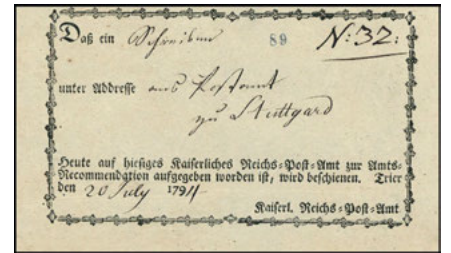 Daß ein Schreiben 89 N: 32:
unter Addresse ans Postamt
zu Stuttgard
Heute auf hiesiges Kaiserliches Reichs=Post=Amt zur Amts=
Recommendation aufgegeben worden ist, wird beschienen. Trier
den 20 July 1794
Kaiserl. Reichs=Post=Amt